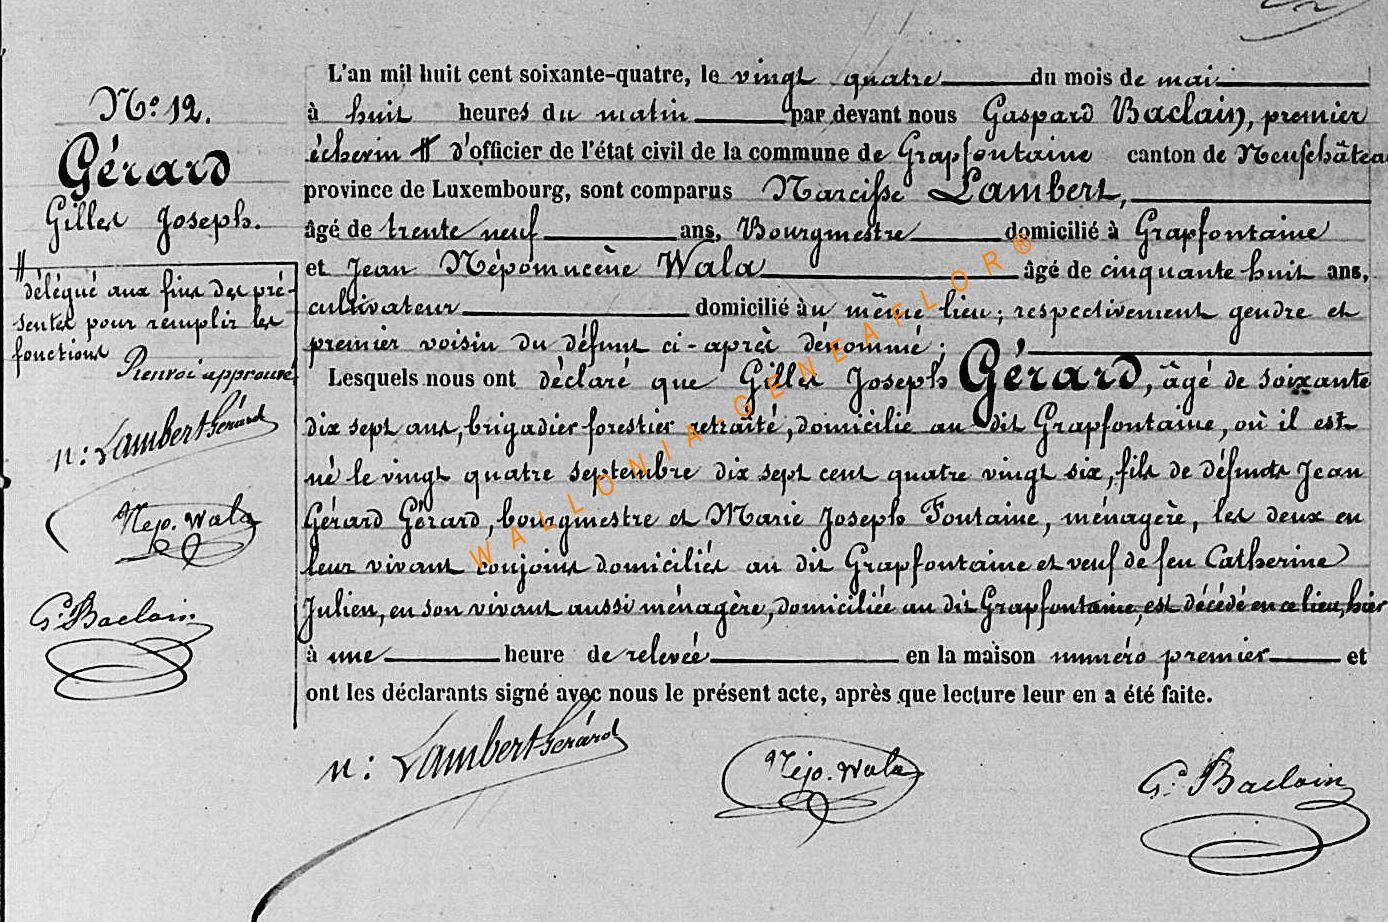 N.º 12.
Gérard
Gilles Joseph.
# délégué aux fins des pré-
sentes pour remplir les
fonctions
Renvoi approuvé
n: Lambert Gérard
Népo. Wala
G. Baclain
L'an mil huit cent soixante-quatre, le vingt quatre du mois de mai
à huit heures du matin par devant nous Gaspard Baclain, premier
échevin # d'officier de l'état civil de la commune de Grapfontaine canton de Neufchâteau
province de Luxembourg, sont comparus Narcisse Lambert,
âgé de trente neuf ans, Bourgmestre domicilié à Grapfontaine
et Jean Népomucène Wala âgé de cinquante huit ans,
cultivateur domicilié au même lieu; respectivement gendre et
premier voisin du défunt ci-après dénommé;
Lesquels nous ont déclaré que Gilles Joseph Gérard, âgé de soixante
dix sept ans, brigadier forestier retraité, domicilié au dit Grapfontaine, où il est
né le vingt quatre septembre dix sept cent quatre vingt six, fils de défunts Jean
Gérard Gérard, bourgmestre et Marie Joseph Fontaine, ménagère, les deux en
leur vivant conjoins domiciliés au dit Grapfontaine et veuf de feu Catherine
Julien, en son vivant aussi ménagère, domiciliée au dit Grapfontaine, est décédé en ce lieu, hier
à une heure de relevée en la maison numéro premier et
ont les déclarants signé avec nous le présent acte, après que lecture leur en a été faite.
n: Lambert Gérard
Népo. Wala
G. Baclain
WALLONIA-GENEAFLOR®